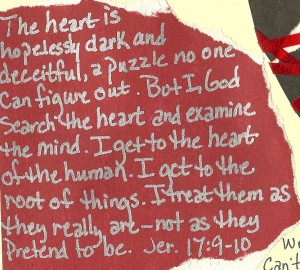 The heart is
hopelessly dark and
deceitful, a puzzle no one
can figure out. But I, God
Search the heart and examine
the mind. I get to the heart
of the human. I get to the
root of things. I treat them as
they really are - not as they
Pretend to be. Jer. 17:9-10
Can't